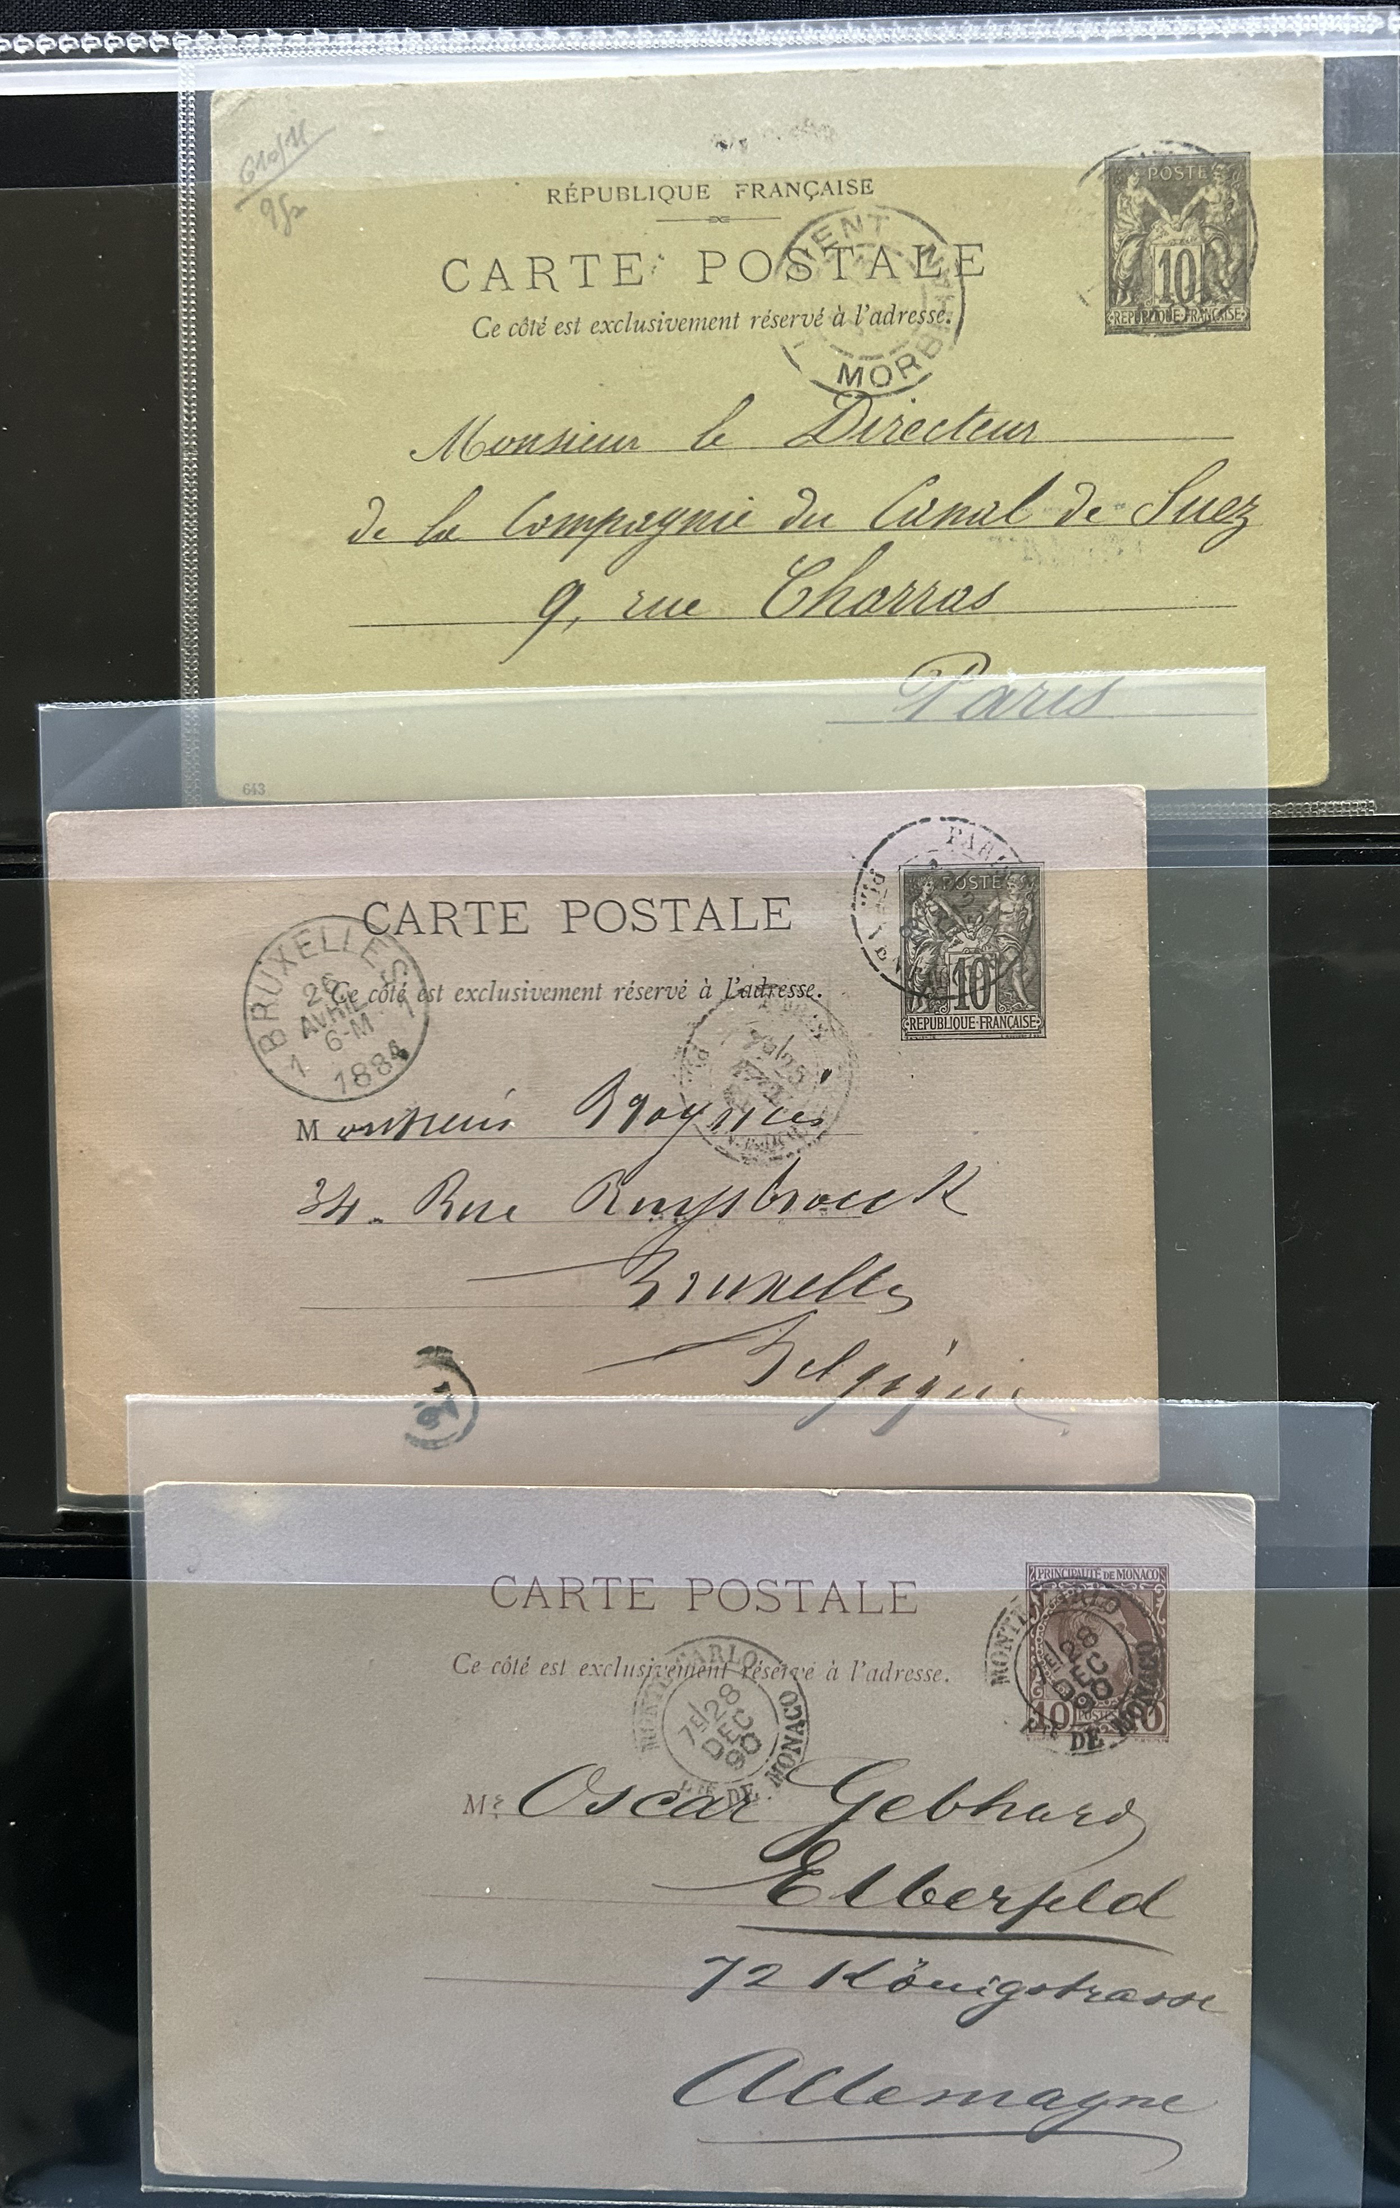 610/11
RÉPUBLIQUE FRANÇAISE
CARTE POSTALE
Ce côté est exclusivement réservé à l'adresse.
POSTE
10
REPUBLIQUE FRANÇAISE
MORBIHAN
Monsieur le Directeur
de la Compagnie du Canal de Suez
9, rue Charras
Paris
643
CARTE POSTALE
Ce côté est exclusivement réservé à l'adresse.
POSTE
10
REPUBLIQUE FRANÇAISE
PARIS
BRUXELLES
26
AVRIL
6-M
1 1
1884
Monsieur
34. Rue Ruysbrouck
Bruxelles
Belgique
CARTE POSTALE
Ce côté est exclusivement réservé à l'adresse.
PRINCIPAUTÉ DE MONACO
10 POSTES 10
MONTE CARLO
7E/28
DEC
90
PTÉ DE MONACO
MONTE CARLO
7E/28
DEC
90
PTÉ DE MONACO
Mr Oscar Gebhard
Elberfeld
72 Königstrasse
Allemagne